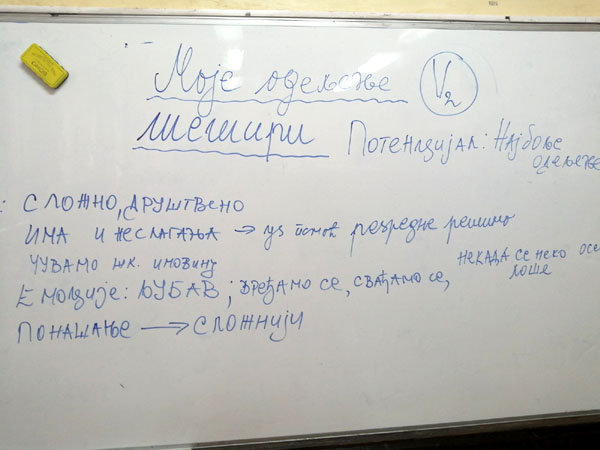 Моје одељење V2
ШЕШИРИ
ПОТЕНЦИЈАЛ: НАЈБОЉЕ
ОДЕЉЕЊЕ
: СЛОЖНО, ДРУШТВЕНО
ИМА И НЕСЛАГАЊА → уз помоћ разредне решимо
ЧУВАМО шк. имовину
ЕМОЦИЈЕ: ЉУБАВ; ВРЕЂАМО СЕ, СВАЂАМО СЕ, НЕКАДА СЕ НЕКО ОСЕ
ЛОШЕ
ПОНАШАЊЕ → СЛОЖНИЈИ